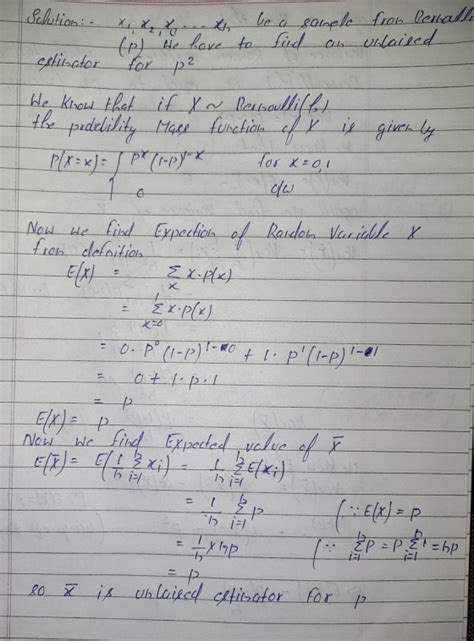 Solution:- x₁, x₂, x₃ ... xₙ be a sample from Bernoulli
(p) We have to find an unbaised
estimator for p²
We know that if X ~ Bernoulli(p)
the probility Mass function of X is given by
P(X=x) = { pˣ (1-p)¹⁻ˣ for x=0,1
0 o/w
Now we find Expection of Random Variable X
from defnition
E(X) = Σₓ x·p(x)
= Σ¹ₓ₌₀ x·p(x)
= 0·p⁰(1-p)¹⁻⁰ + 1·p¹(1-p)¹⁻¹
= 0+1·p·1
= p
E(X) = p
Now we find Expected value of X̄
E(X̄) = E(1/n Σⁿᵢ₌₁ xᵢ) = 1/n Σⁿᵢ₌₁ E(xᵢ)
= 1/n Σⁿᵢ₌₁ p (∵ E(X) = p
= 1/n × np (∵ Σⁿᵢ₌₁ p = p Σⁿᵢ₌₁ 1 = np
= p
so x̄ is unbaised estimator for p